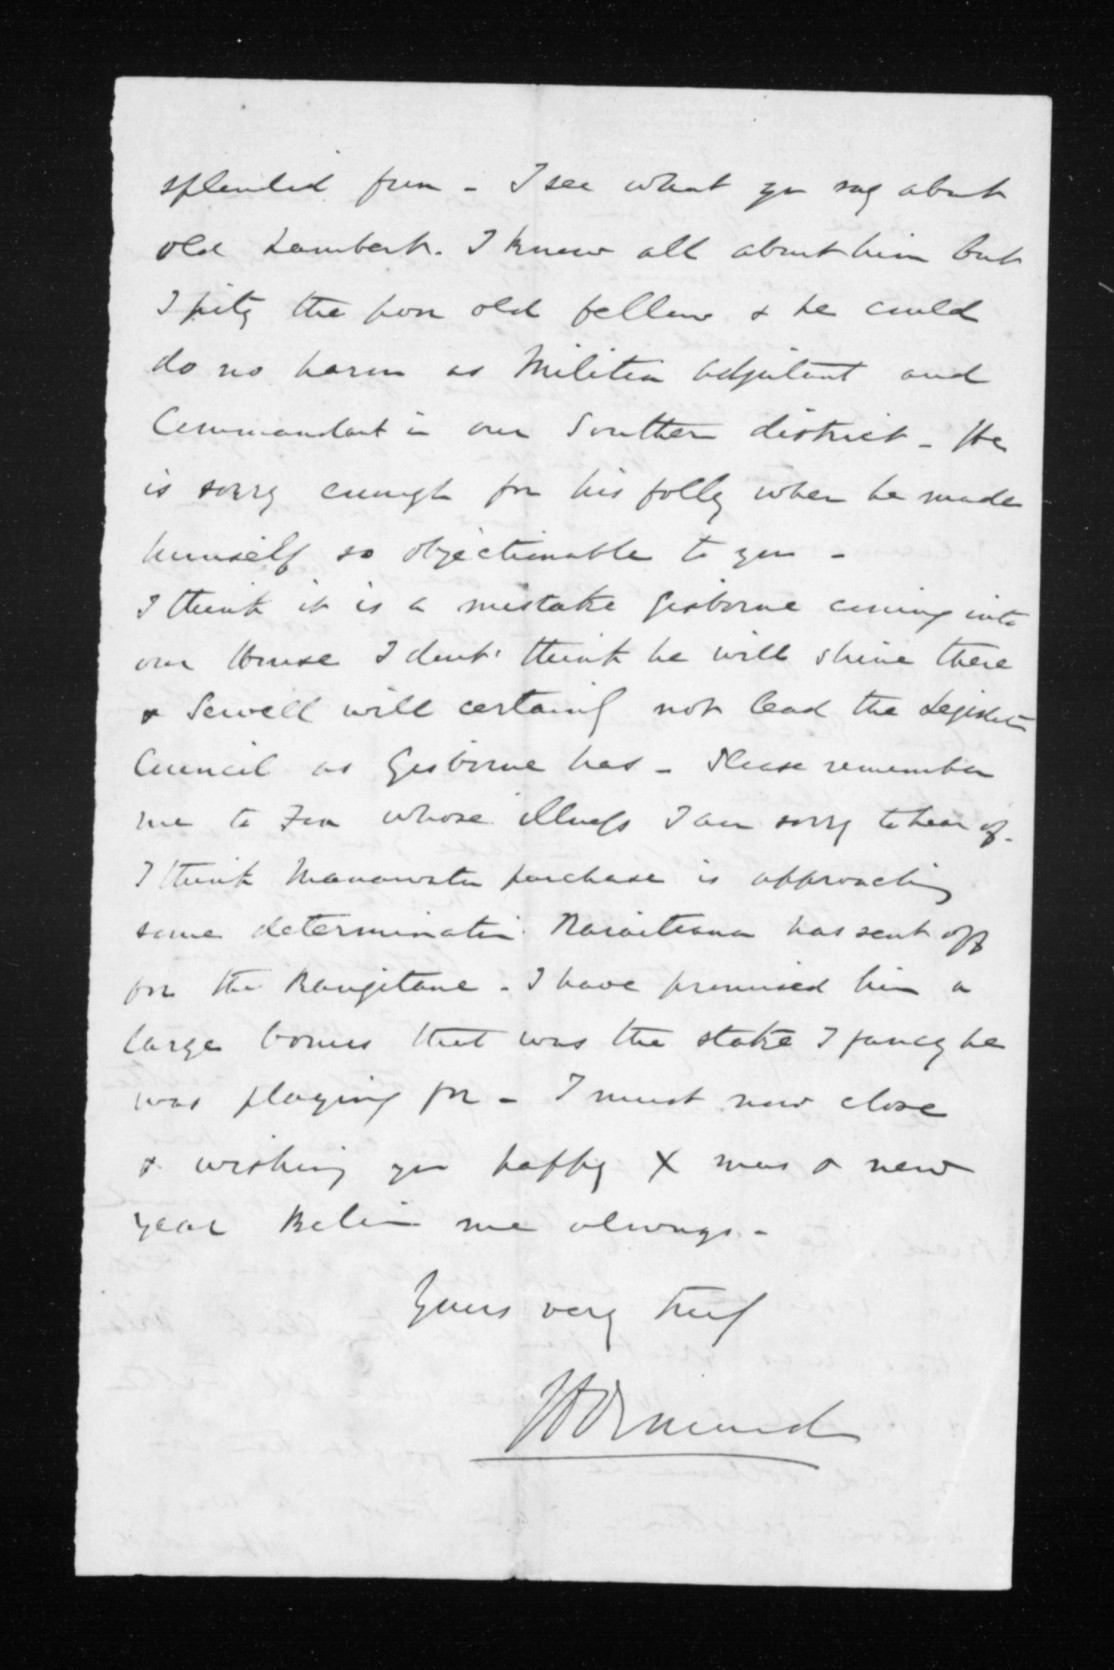 splendid fun - I see what you say about
old Lambert. I knew all about him but
I pity the poor old fellow & he could
do no harm as Militia Adjutant and
Commandant in our Southern district - He
is sorry enough for his folly when he made
himself so objectionable to you -
I think it is a mistake Gisborne coming into
our House I dont think he will shine there
& Sewell will certainly not lead the Legislative
Council as Gisborne has - Please remember
me to Fox whose illness I am sorry to hear of.
I think Manawatu purchase is approaching
some determination Karaitiana has sent off
for the Rangitane - I have promised him a
large bonus that was the stake I fancy he
was playing for - I must now close
& wishing you happy X mas & new
year Believe me always -
Yours very truly
JD Ormond